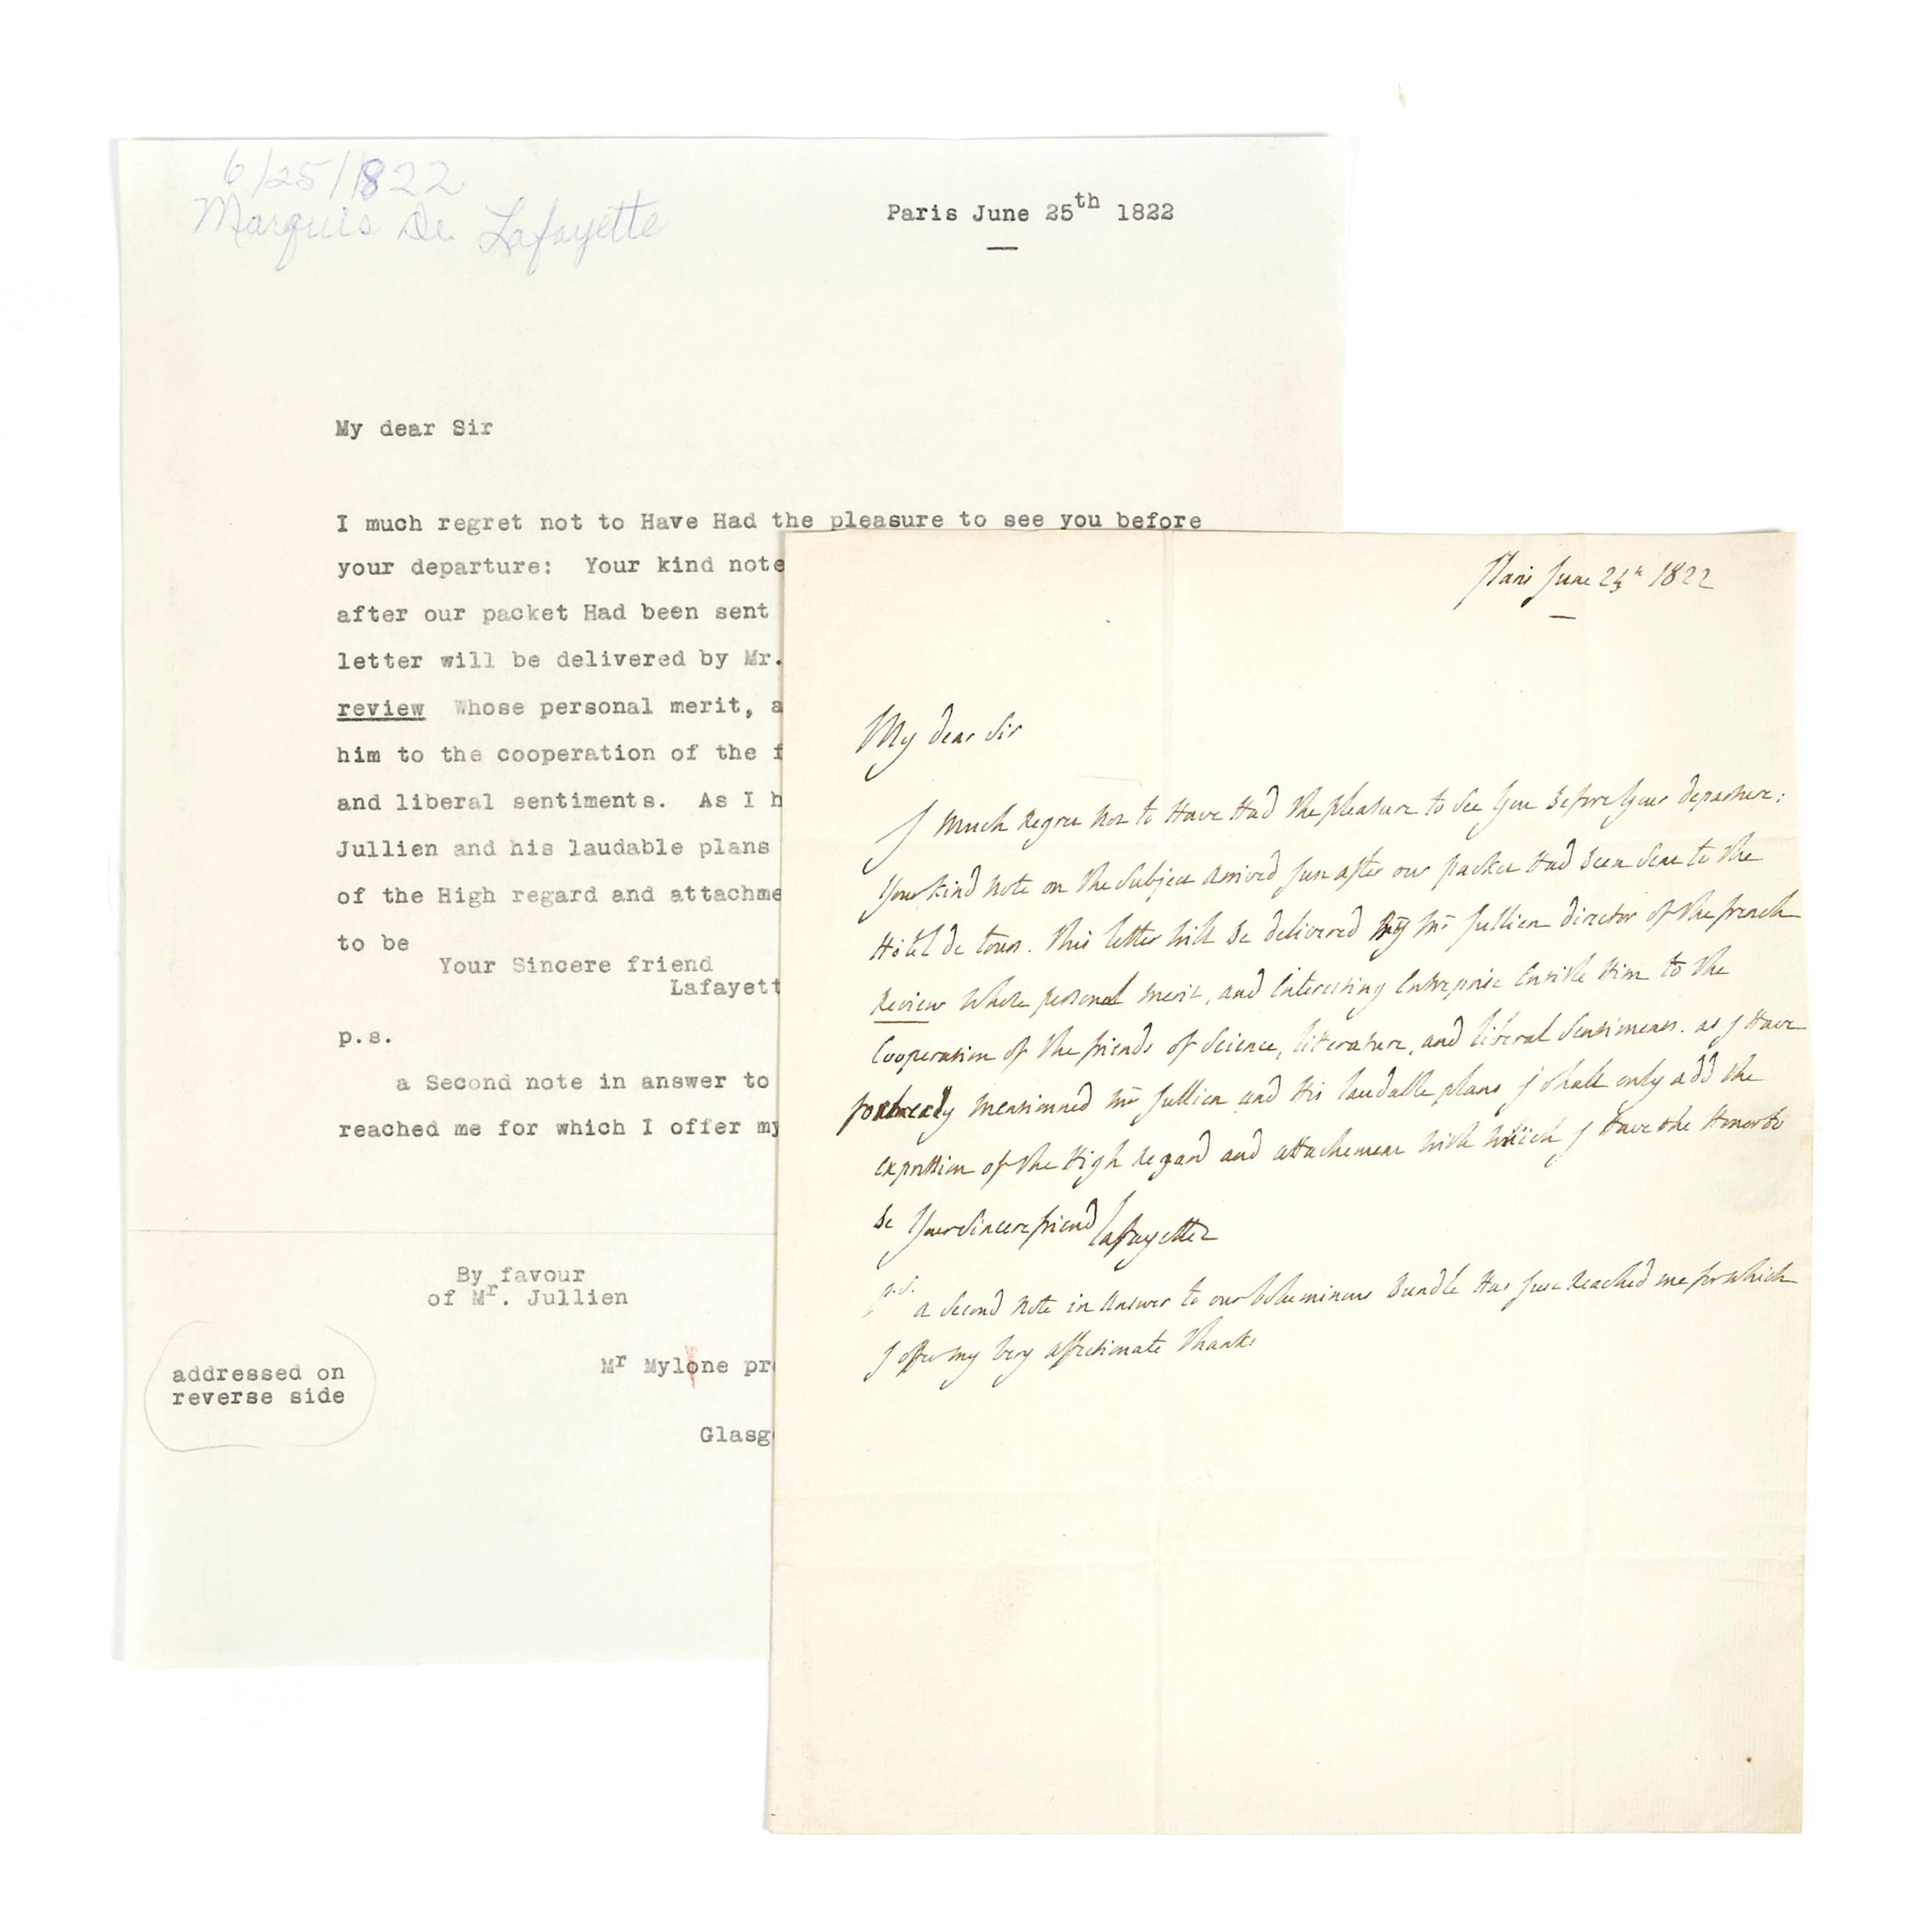 6/25/1822
Marquis De Lafayette
Paris June 25th 1822
My dear Sir
I much regret not to Have Had the pleasure to see you before
your departure: Your kind note
after our packet Had been sent
letter will be delivered by Mr.
review Whose personal merit, a
him to the cooperation of the f
and liberal sentiments. As I h
Jullien and his laudable plans
of the High regard and attachme
to be
Your Sincere friend
Lafayett
p.s.
a Second note in answer to
reached me for which I offer my
By favour
of Mr. Jullien
addressed on
reverse side
Mr Mylone pro
Glasgo
Paris June 25th 1822
My dear Sir
I Much Regret Not to Have Had the pleasure to See You Before Your departure:
Your Kind Note on the Subject Arrived Just after our packet Had Been Sent to the
Hotel de tours. This letter Will Be delivered By Mr Jullien director of the french
Review Whose personal merit, and Interesting Entreprise Entitle Him to the
Cooperation of the friends of Science, literature, and liberal Sentiments. as I Have
already mentionned Mr Jullien and His laudable plans I shall only add the
expression of the High Regard and attachement With Which I Have the Honor to
Be Your Sincere friend Lafayette
p.s.
a Second Note in Answer to our Voluminous Bundle Has Just Reached me for Which
I offer my Very affectionate Thanks